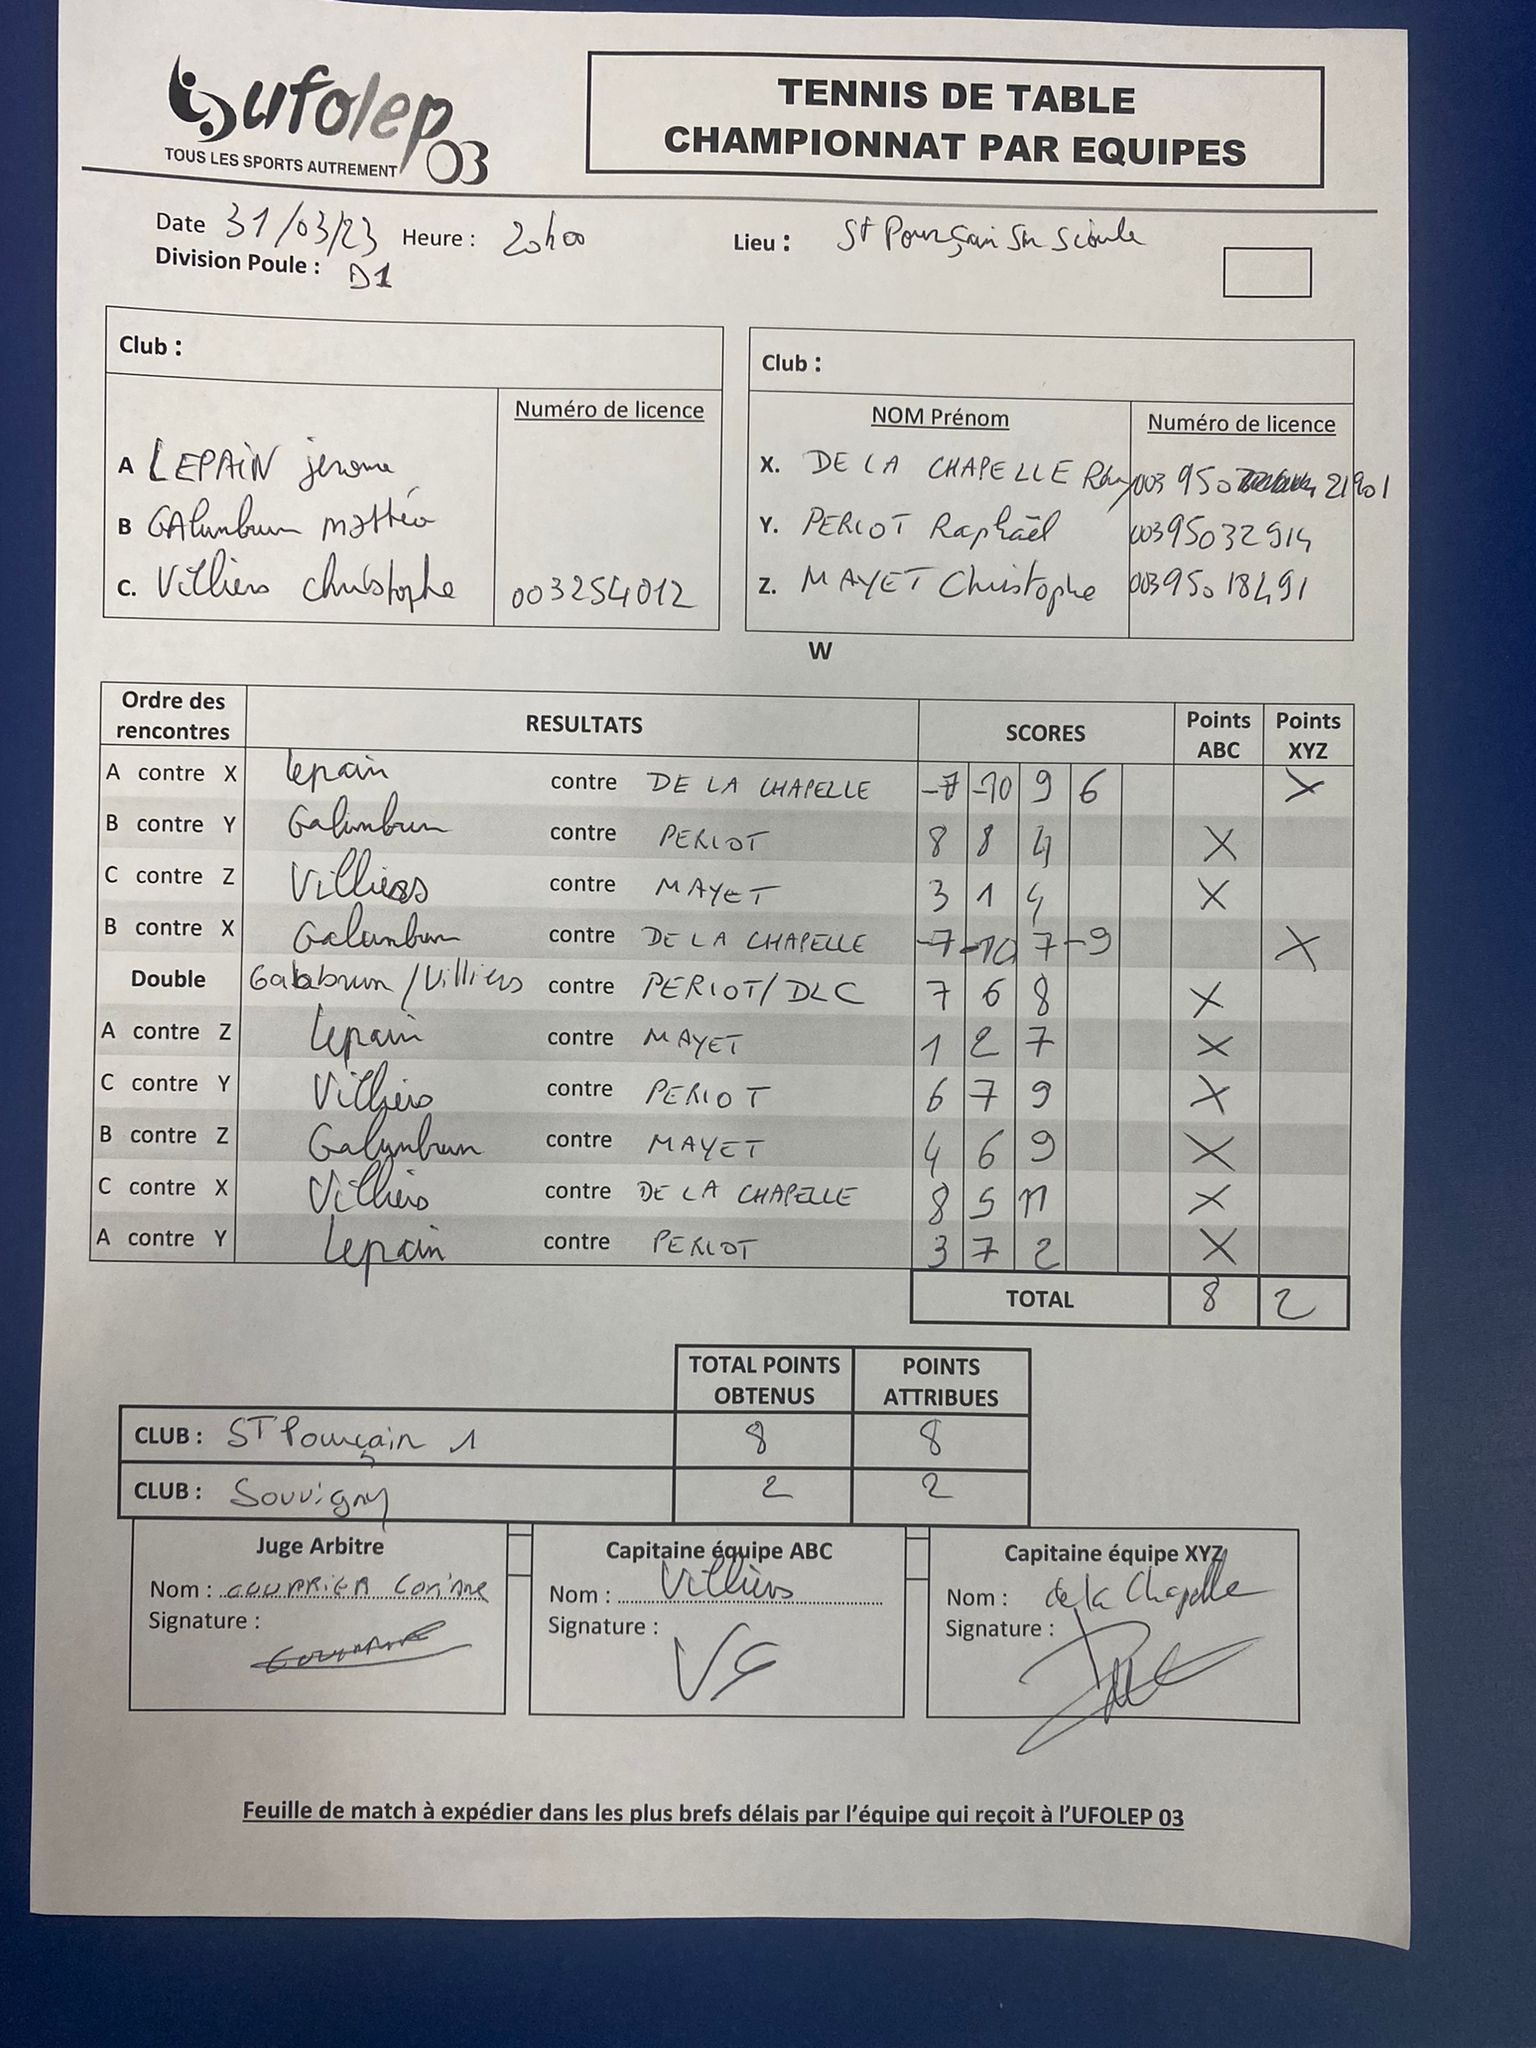 ufolep 03
TOUS LES SPORTS AUTREMENT
TENNIS DE TABLE
CHAMPIONNAT PAR EQUIPES
Date 31/03/23 Heure : 20h00 Lieu : St Pourçain sur Sioule
Division Poule : D1
Club :
Numéro de licence
A LEPAIN jerome
B GAlumbrun mattéo
C. Villiers christophe 003254012
Club :
NOM Prénom Numéro de licence
X. DE LA CHAPELLE 003950 21901
Y. PERIOT Raphaël 00395032914
Z. MAYET Christophe 00395018491
W
Ordre des rencontres RESULTATS SCORES Points ABC Points XYZ
A contre X Lepain contre DE LA CHAPELLE -7 -10 9 6 X
B contre Y Galumbrun contre PERIOT 8 8 4 X
C contre Z Villiers contre MAYET 3 1 4 X
B contre X Galumbrun contre DE LA CHAPELLE -7 -10 7 -9 X
Double Galabrun/Villiers contre PERIOT/DLC 7 6 8 X
A contre Z Lepain contre MAYET 1 2 7 X
C contre Y Villiers contre PERIOT 6 7 9 X
B contre Z Galumbrun contre MAYET 4 6 9 X
C contre X Villiers contre DE LA CHAPELLE 8 5 11 X
A contre Y Lepain contre PERIOT 3 7 2 X
TOTAL 8 2
TOTAL POINTS OBTENUS POINTS ATTRIBUES
CLUB : ST Pourçain 1 8 8
CLUB : Souvigny 2 2
Juge Arbitre
Nom : Corinne
Signature :
Capitaine équipe ABC
Nom : Villiers
Signature :
Capitaine équipe XYZ
Nom : de la Chapelle
Signature :
Feuille de match à expédier dans les plus brefs délais par l'équipe qui reçoit à l'UFOLEP 03